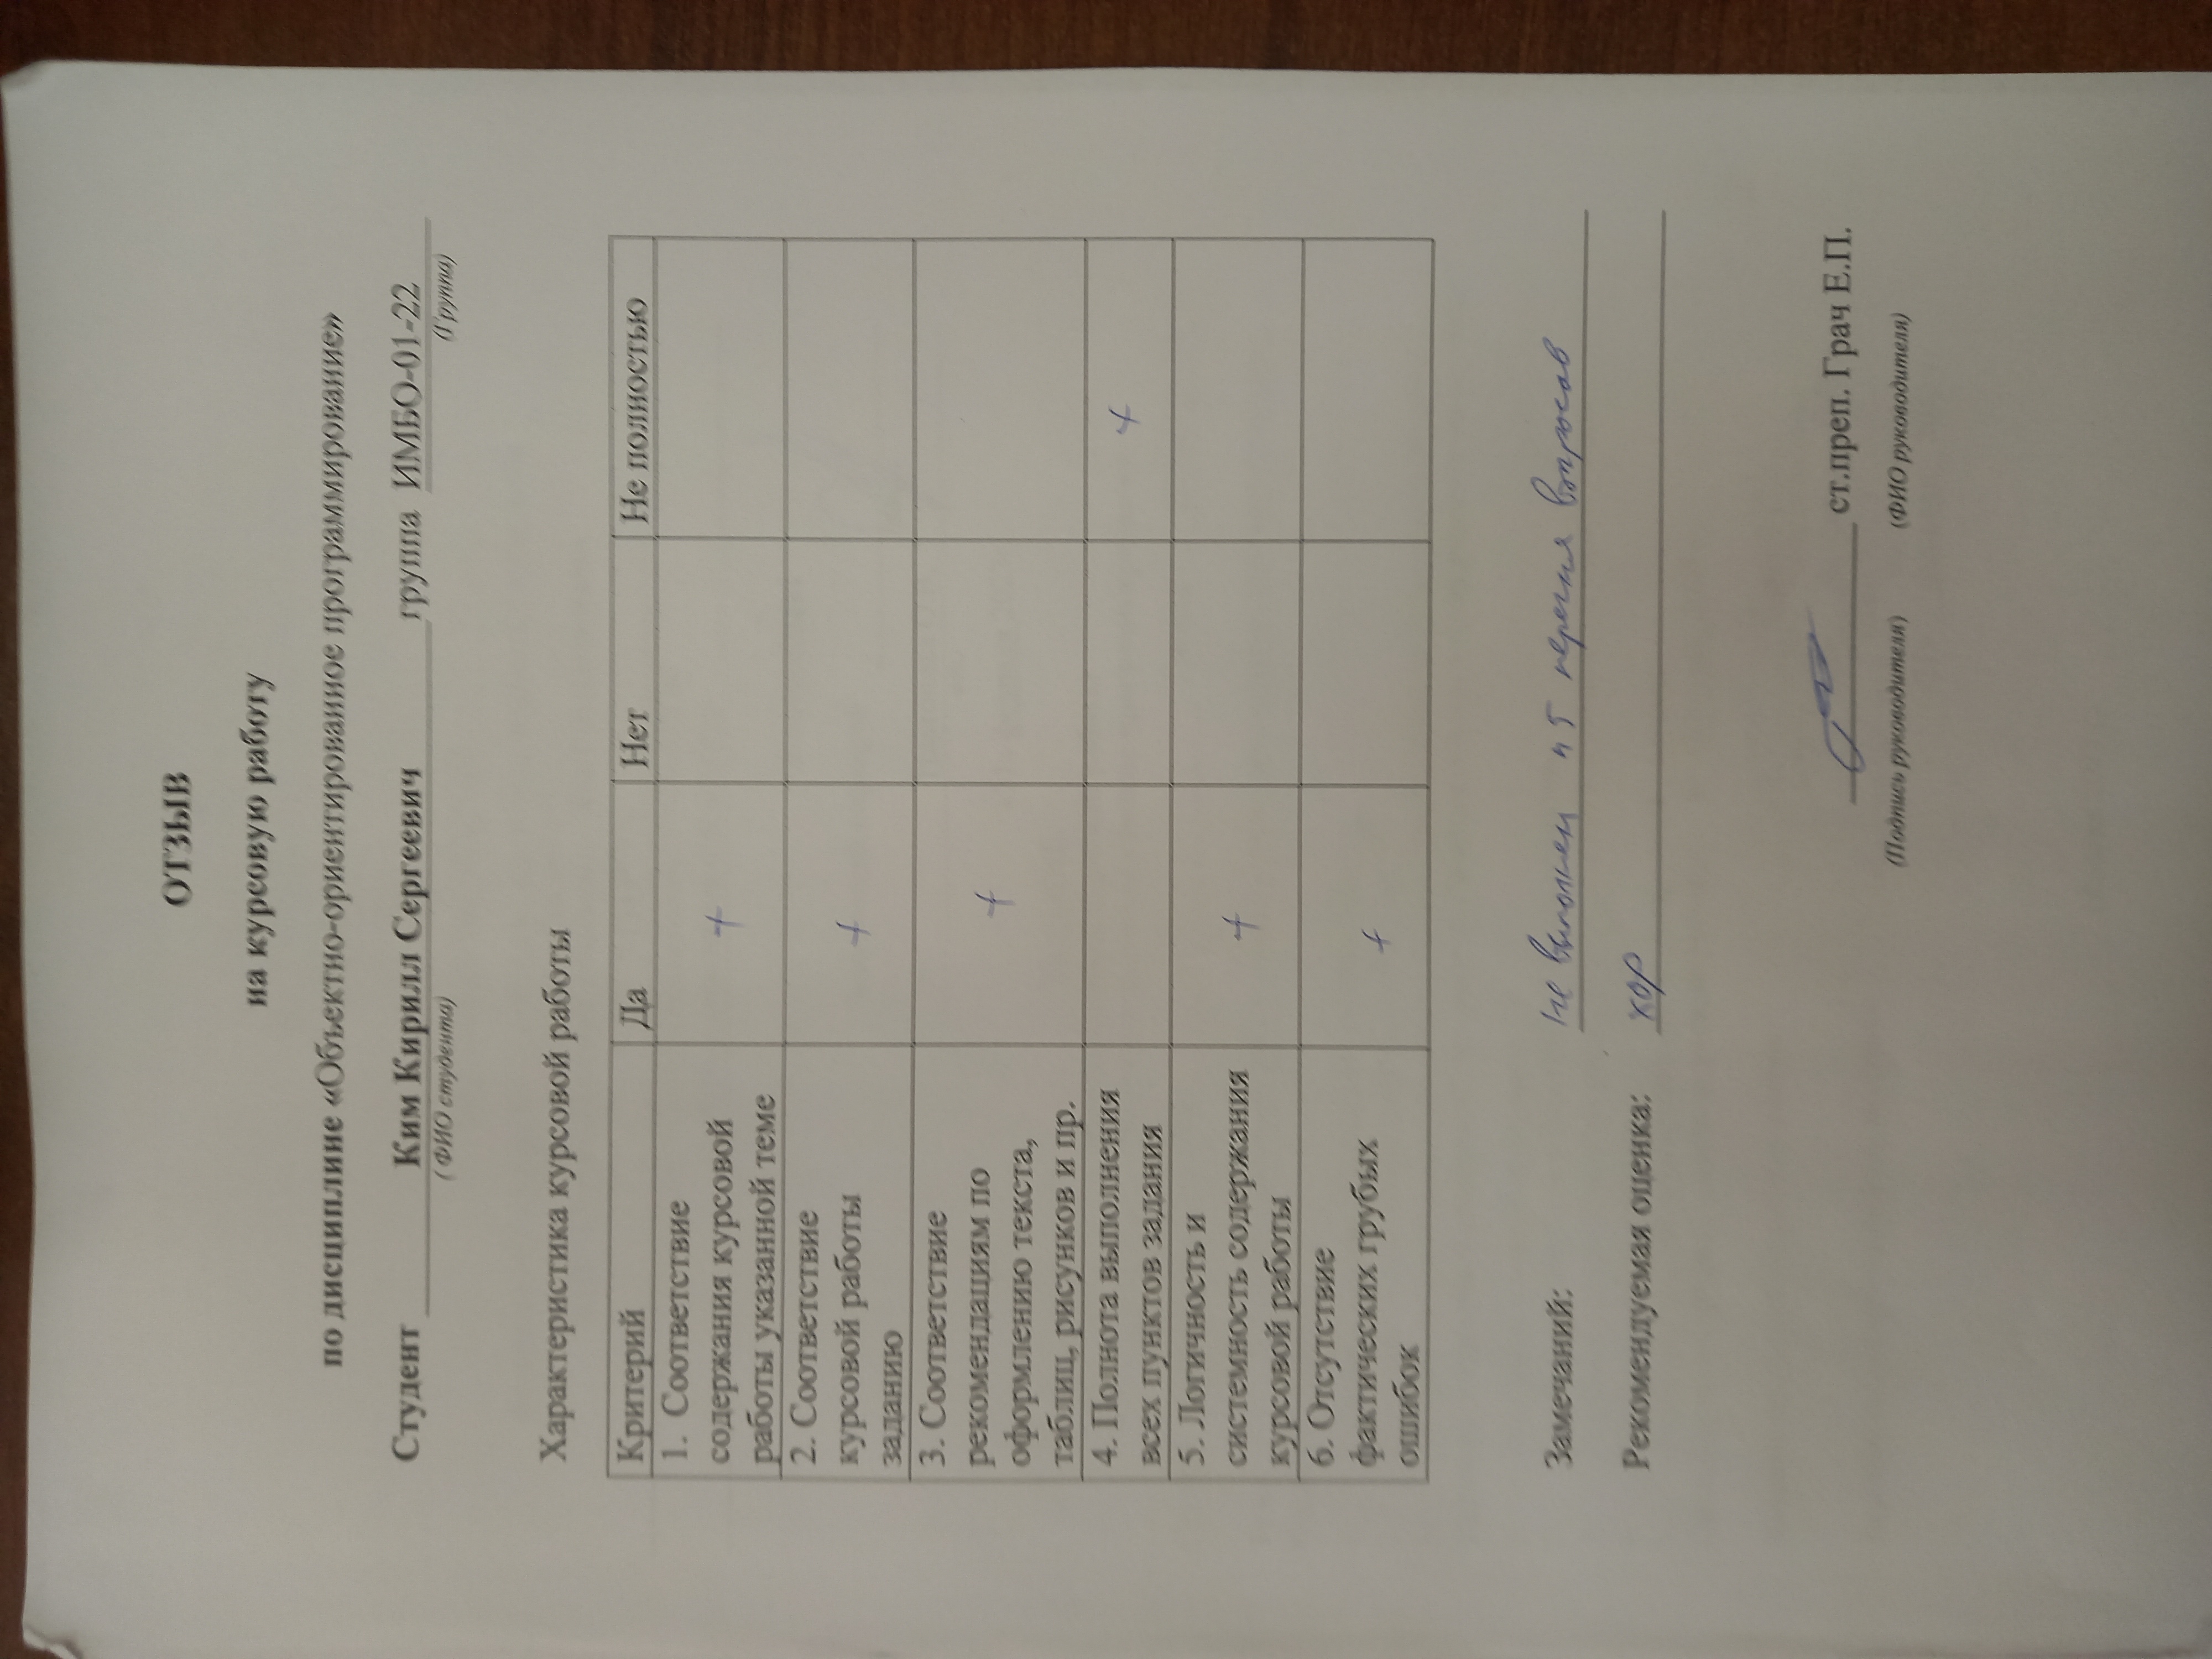 ОТЗЫВ
на курсовую работу
по дисциплине «Объектно-ориентированное программирование»
Студент Ким Кирилл Сергеевич группа ИМБО-01-22
(ФИО студента) (Группа)
Характеристика курсовой работы
Критерий Да Нет Не полностью
1. Соответствие
содержания курсовой
работы указанной теме
+
2. Соответствие
курсовой работы
заданию
+
3. Соответствие
рекомендациям по
оформлению текста,
таблиц, рисунков и пр.
+
4. Полнота выполнения
всех пунктов задания
+
5. Логичность и
системность содержания
курсовой работы
+
6. Отсутствие
фактических грубых
ошибок
+
Замечаний: не выполнен п 5 перечня вопросов
Рекомендуемая оценка: хор
ст.преп. Грач Е.П.
(Подпись руководителя) (ФИО руководителя)